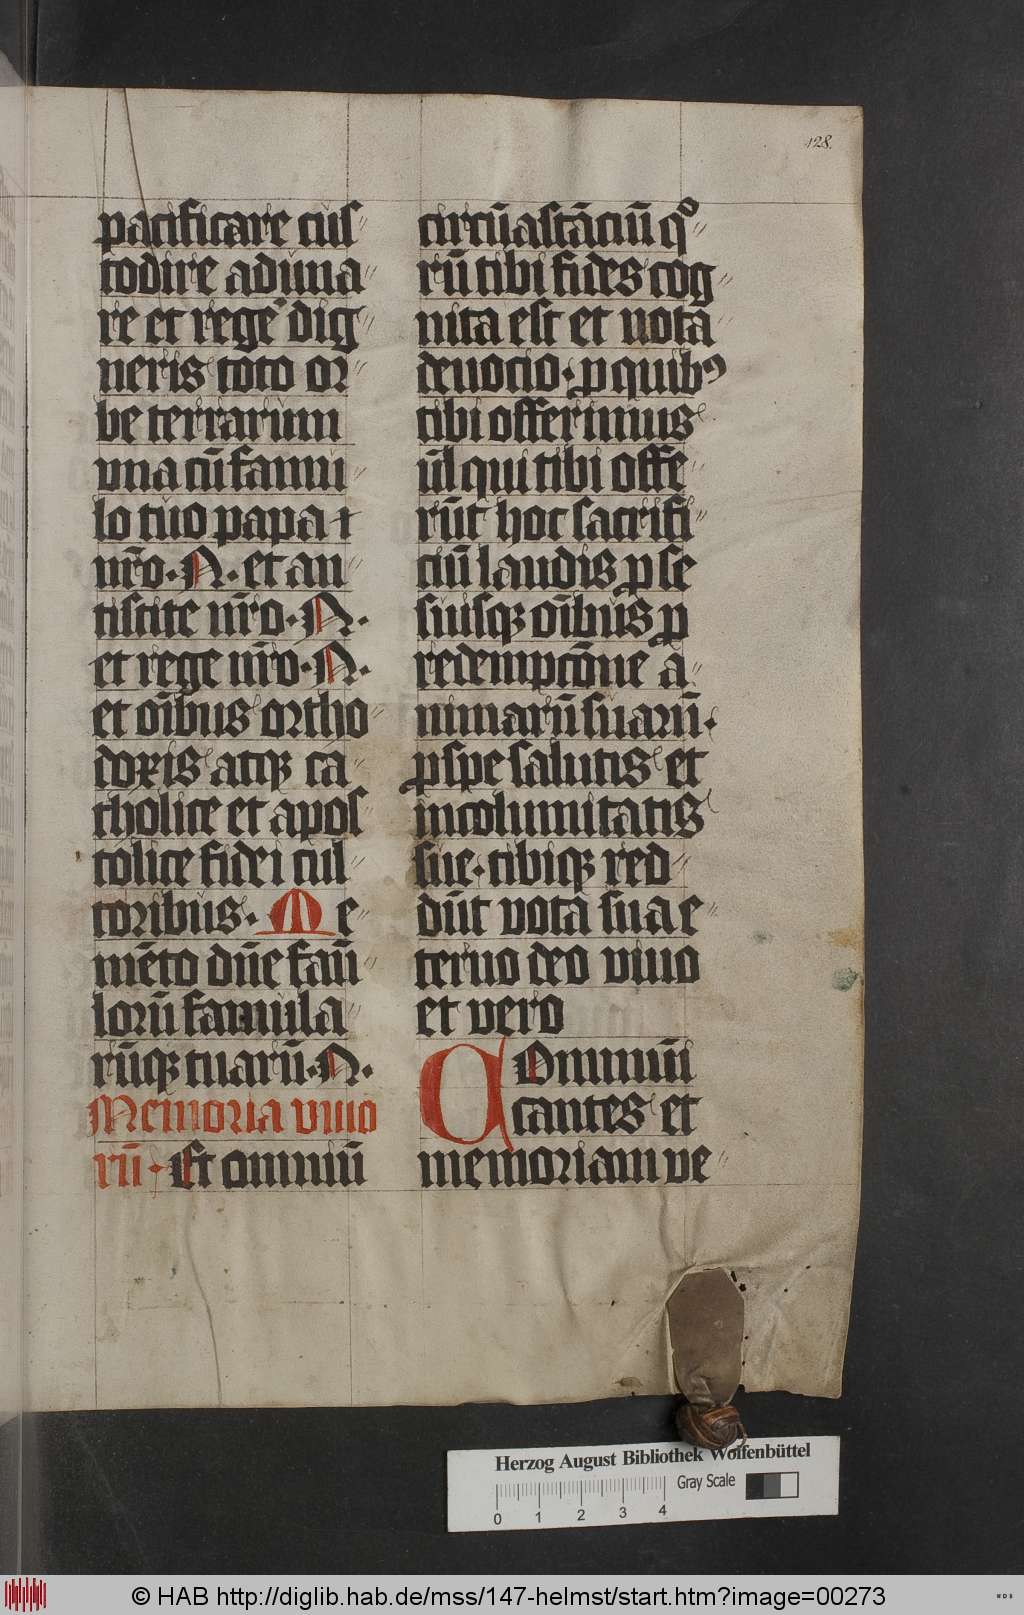 128.
pacificare cus
todire aduna
re et regē dig
neris toto or
be terrarum
vna cū famu
lo tuo papa
nr̄o · N · et an
tistite nr̄o · N ·
et rege nr̄o · N ·
et oībus ortho
doxis atqꝫ ca
tholice et apos
tolice fidei cul
toribus · Me
mēto dn̄e fāu
lorū famula
rūqꝫ tuarū · N ·
Memoria viuo
rū · Et omniū
circūastāciū qͦ
rū tibi fides cog
nita est et nota
deuocio · ꝓ quibꝰ
tibi offerimus
ul̄ qui tibi offe
rūt hoc sacrifi
ciū laudis ꝓ se
suisqꝫ oībus ꝓ
redempcōne a
nimarū suarū ·
ꝓ spe salutis et
incolumitatis
sue · tibiqꝫ red
dūt vota sua e
terno deo viuo
et vero
COmmuni
cantes et
memoriam ve
Herzog August Bibliothek Wolfenbüttel
Gray Scale
0 1 2 3 4
© HAB http://diglib.hab.de/mss/147-helmst/start.htm?image=00273